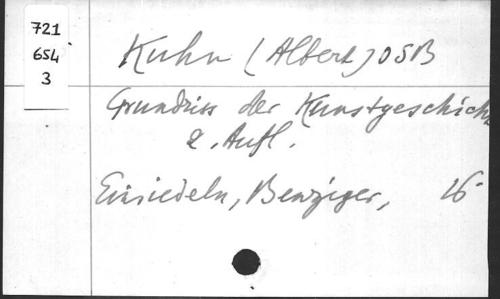 721
654
3
Kuhn (Albert) OSB
Grundriss der Kunstgeschich
2. Aufl.
Einsiedeln, Benziger,